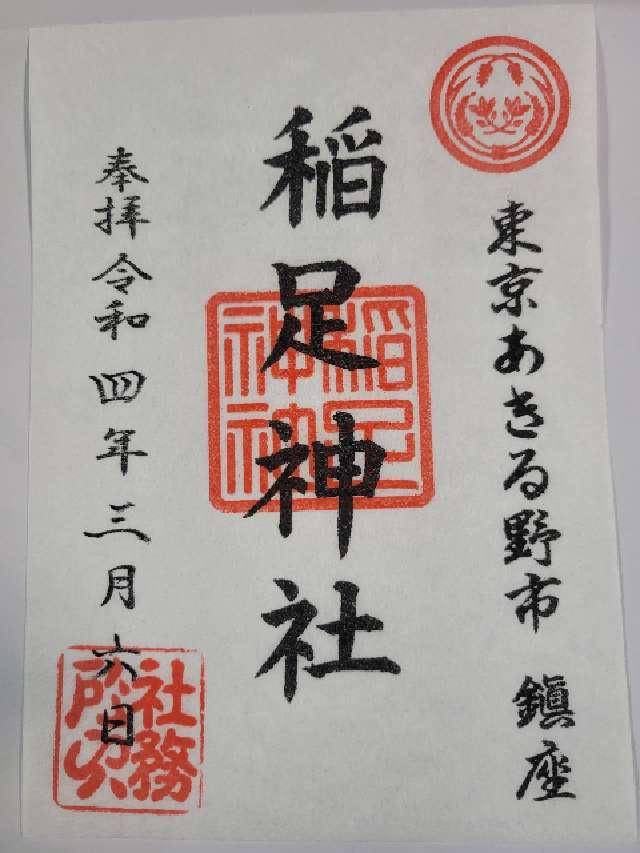 東京あきる野市 鎮座
稲足神社
稲足
神社
奉拝令和四年三月六日
社務
所印